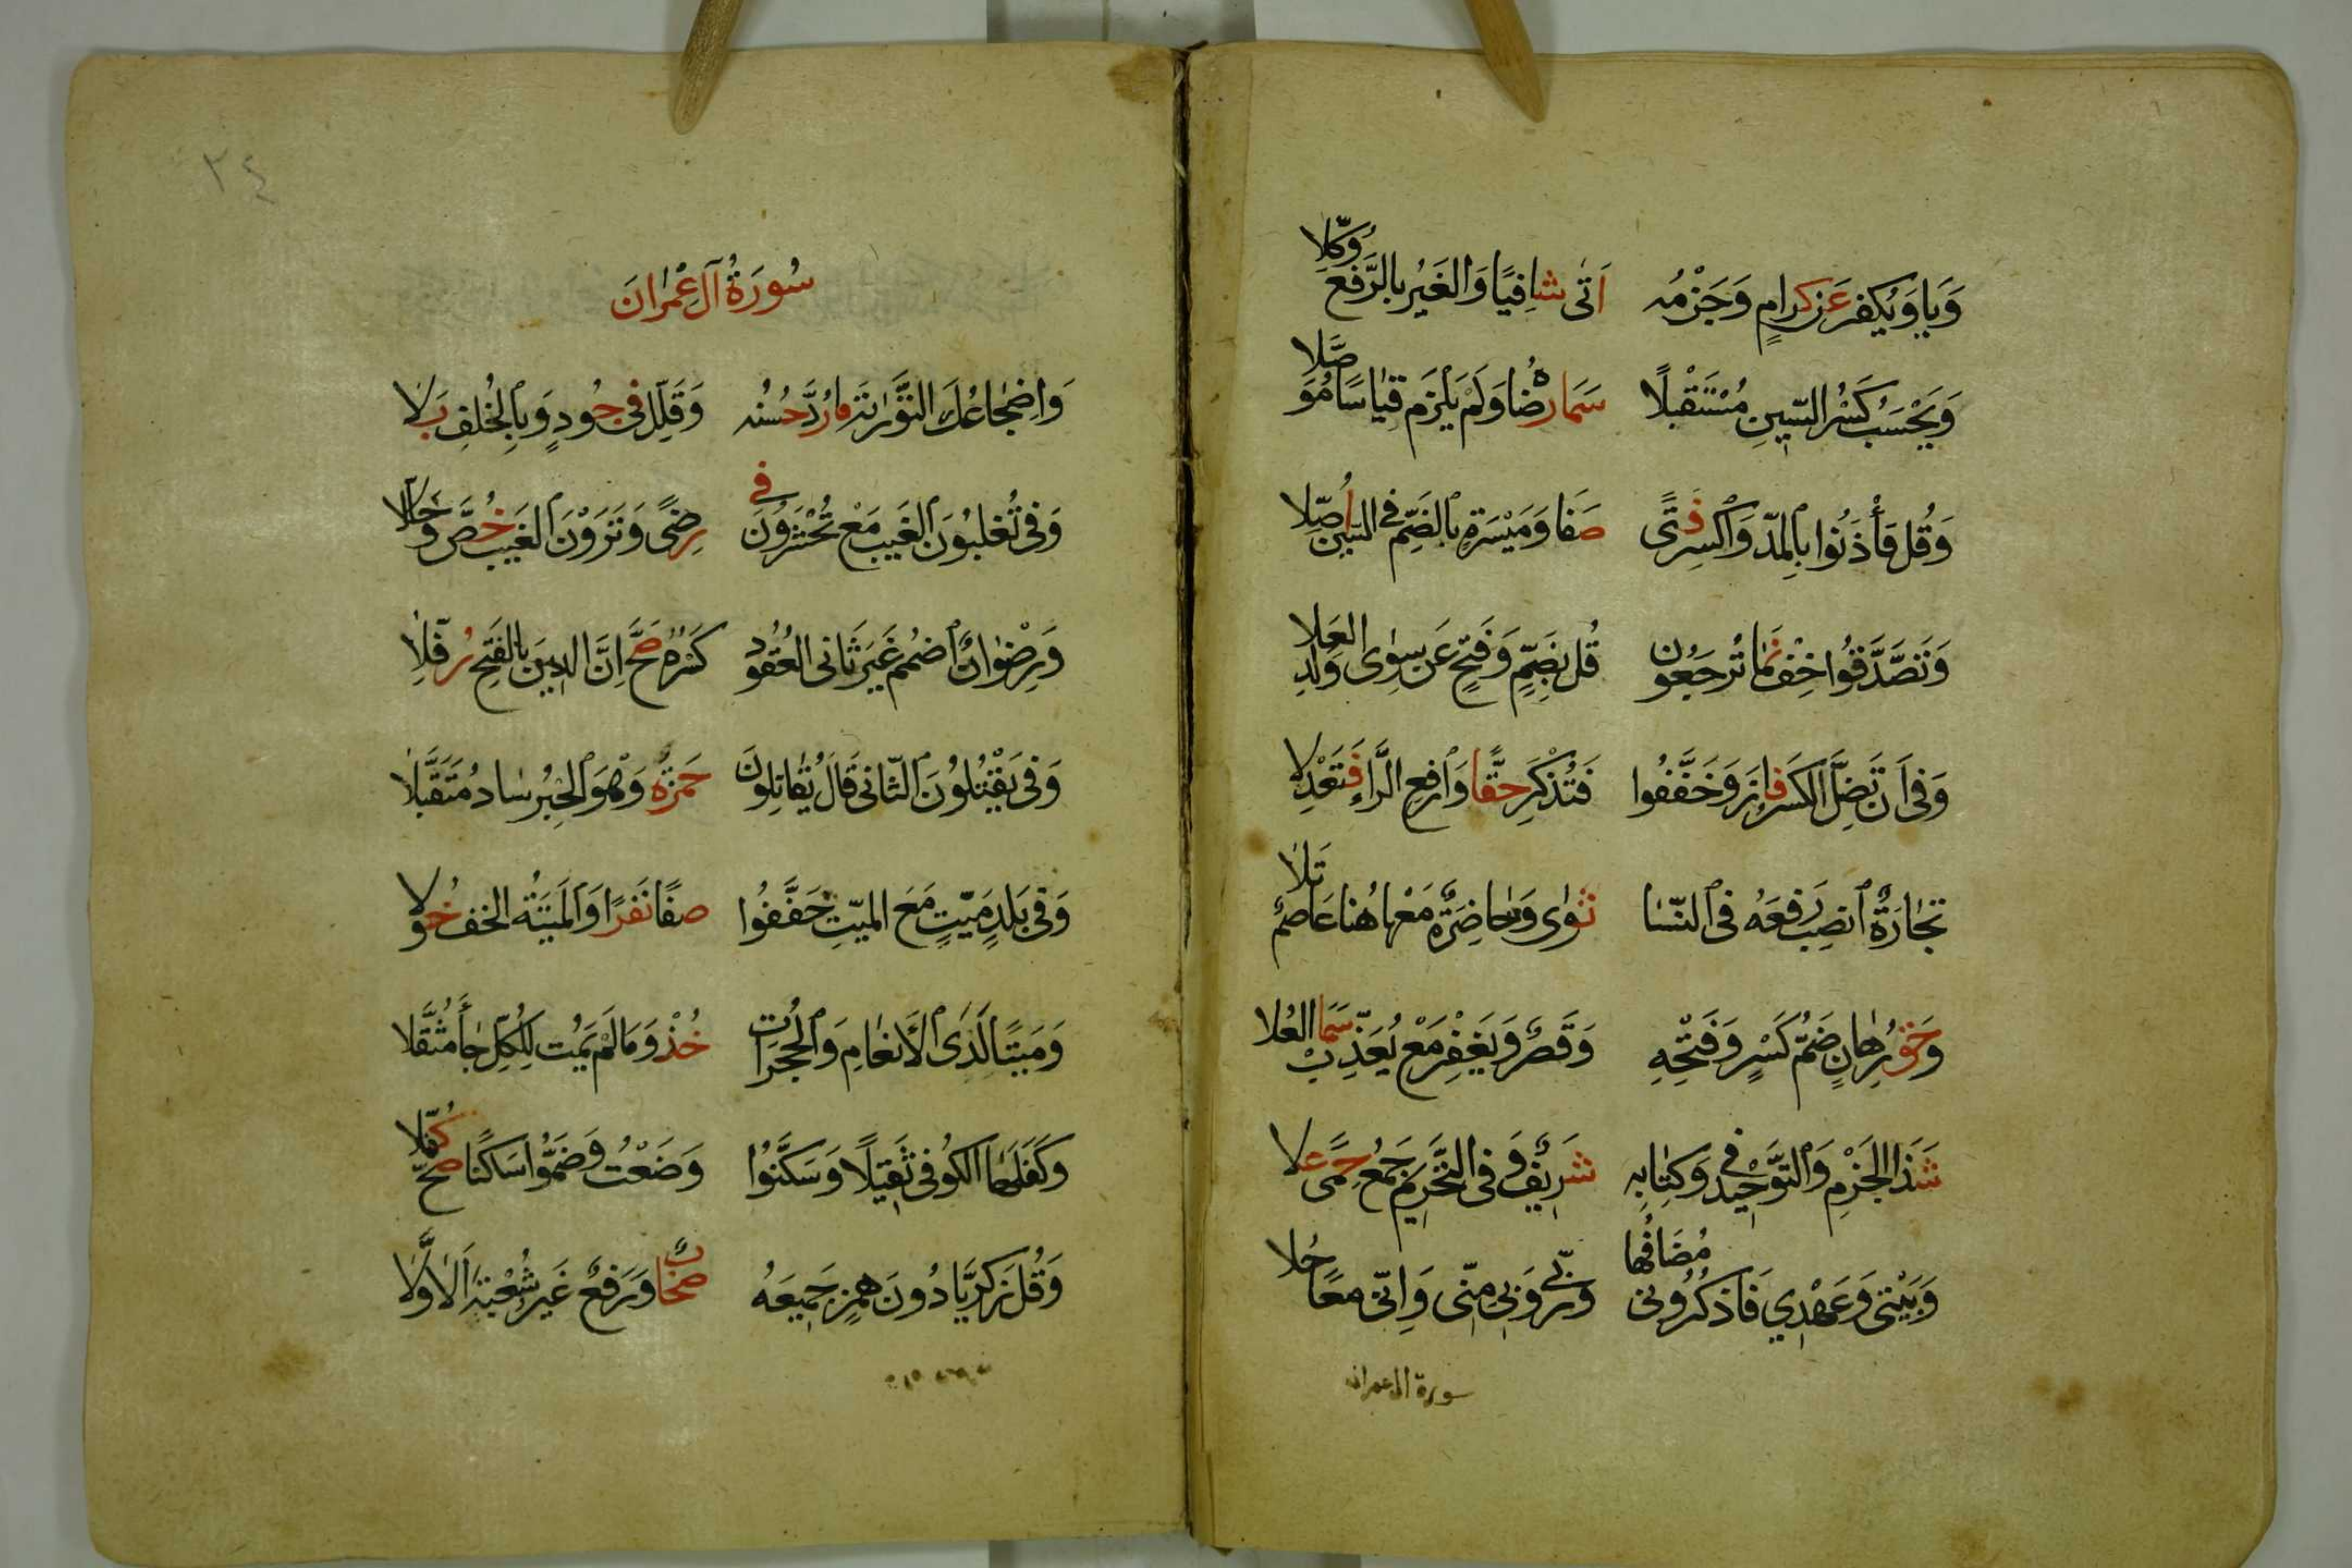 وَيَا وَيُكَفِّرْ عَنْ كِرَامٍ وَجَزْمُهُ اَتَى شَافِيًا وَالْغَيْرُ بِالرَّفْعِ وُكِّلَا
وَيَحْسَبُ كَسْرُ السِّينِ مُسْتَقْبَلًا سَمَا رِضَاهُ وَلَمْ يَلْزَمْ قِيَاسًا مُؤَصَّلَا
وَقُلْ فَأْذَنُوا بِالْمَدِّ وَاكْسِرْ فَتًى صَفَا وَمَيْسَرَةٍ بِالضَّمِّ فِي السِّينِ أُصِّلَا
وَتَصَّدَّقُوا خِفٌّ نَمَا تُرْجَعُونَ قُلْ بِضَمٍّ وَفَتْحٍ عَنْ سِوَى وَلَدِ الْعَلَا
وَفِي اَنْ تَضِلَّ الْكَسْرُ فَازَ وَخَفَّفُوا فَتُذْكِرَ حَقًّا وَارْفَعِ الرَّاءَ فَتَعْدِلَا
تِجَارَةٌ انْصِبْ رَفْعَهُ فِي النِّسَا ثَوَى وَحَاضِرَةٌ مَعْهَا هُنَا عَاصِمٌ تَلَا
وَحَقُّ رِهَانٍ ضَمُّ كَسْرٍ وَفَتْحِهِ وَقَصْرٌ وَيَغْفِرْ مَعْ يُعَذِّبْ سَمَا الْعُلَا
شَذَا الْجَزْمِ وَالتَّوْحِيدُ فِي وَكِتَابِهِ شَرِيفٌ وَفِي التَّحْرِيمِ جَمْعُ حِمًى عَلَا
وَبَيْتِي وَعَهْدِي فَاذْكُرُونِي مُضَافُهَا وَرَبِّي وَبِي مِنِّي وَاِنِّي مَعًا حُلَا
سورة ال عمران
٣٤
سُورَةُ آلِ عِمْرَانَ
وَاِضْجَاعُكَ التَّوْرَاةَ مَا رُدَّ حُسْنُهُ وَقُلِّلَ فِي جُودٍ وَبِالْخُلْفِ بَلَّلَا
وَفِي تُغْلَبُونَ الْغَيْبُ مَعْ تُحْشَرُونَ فِي رِضًى وَتَرَوْنَ الْغَيْبُ خُصَّ وَخُلِّلَا
وَرِضْوَانٌ اضْمُمْ غَيْرَ ثَانِي الْعُقُودِ كَسْرَهُ صَحَّ اِنَّ الدِّينَ بِالْفَتْحِ رُفِّلَا
وَفِي يَقْتُلُونَ الثَّانِي قَالَ يُقَاتِلُونَ حَمْزَةُ وَهْوَ الْحَبْرُ سَادَ مُقَتَّلَا
وَفِي بَلَدٍ مَيِّتٍ مَعَ الْمَيِّتِ خَفَّفُوا صَفَا نَفَرًا وَالْمَيْتَةُ الْخِفُّ خُوِّلَا
وَمَيْتًا لَدَى الْاَنْعَامِ وَالْحُجُرَاتِ خُذْ وَمَا لَمْ يَمُتْ لِلْكُلِّ جَاءَ مُثَقَّلَا
وَكَفَّلَهَا الْكُوفِي ثَقِيلًا وَسَكَّنُوا وَضَعْتُ وَضَمُّوا سَاكِنًا صَحَّ كُفَّلَا
وَقُلْ زَكَرِيَّا دُونَ هَمْزِ جَمِيعِهُ صِحَابٌ وَرَفْعٌ غَيْرُ شُعْبَةَ الْاَوَّلَا